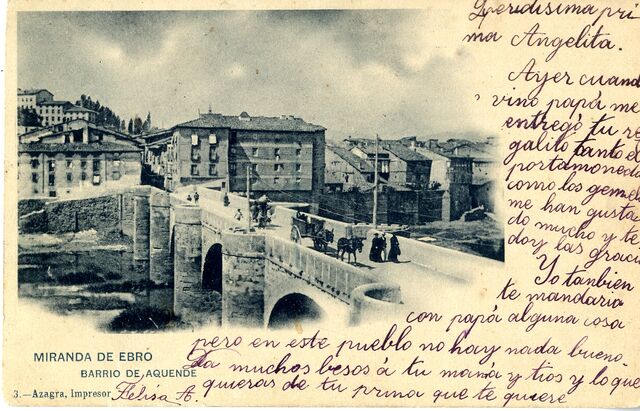 Queridisima pri
ma Angelita.
Ayer cuand
vino papá me
entregó tu re
galito tanto e
portamoneda
como los geme
me han gusta
do mucho y te
doy las graci
Yo tanbien
te mandaria
con papá alguna cosa
pero en este pueblo no hay nada bueno.
Da muchos besos á tu mamá y tios y lo que
quieras de tu prima que te quiere
Felisa A.
MIRANDA DE EBRO
BARRIO DE AQUENDE
3.—Azagra, Impresor